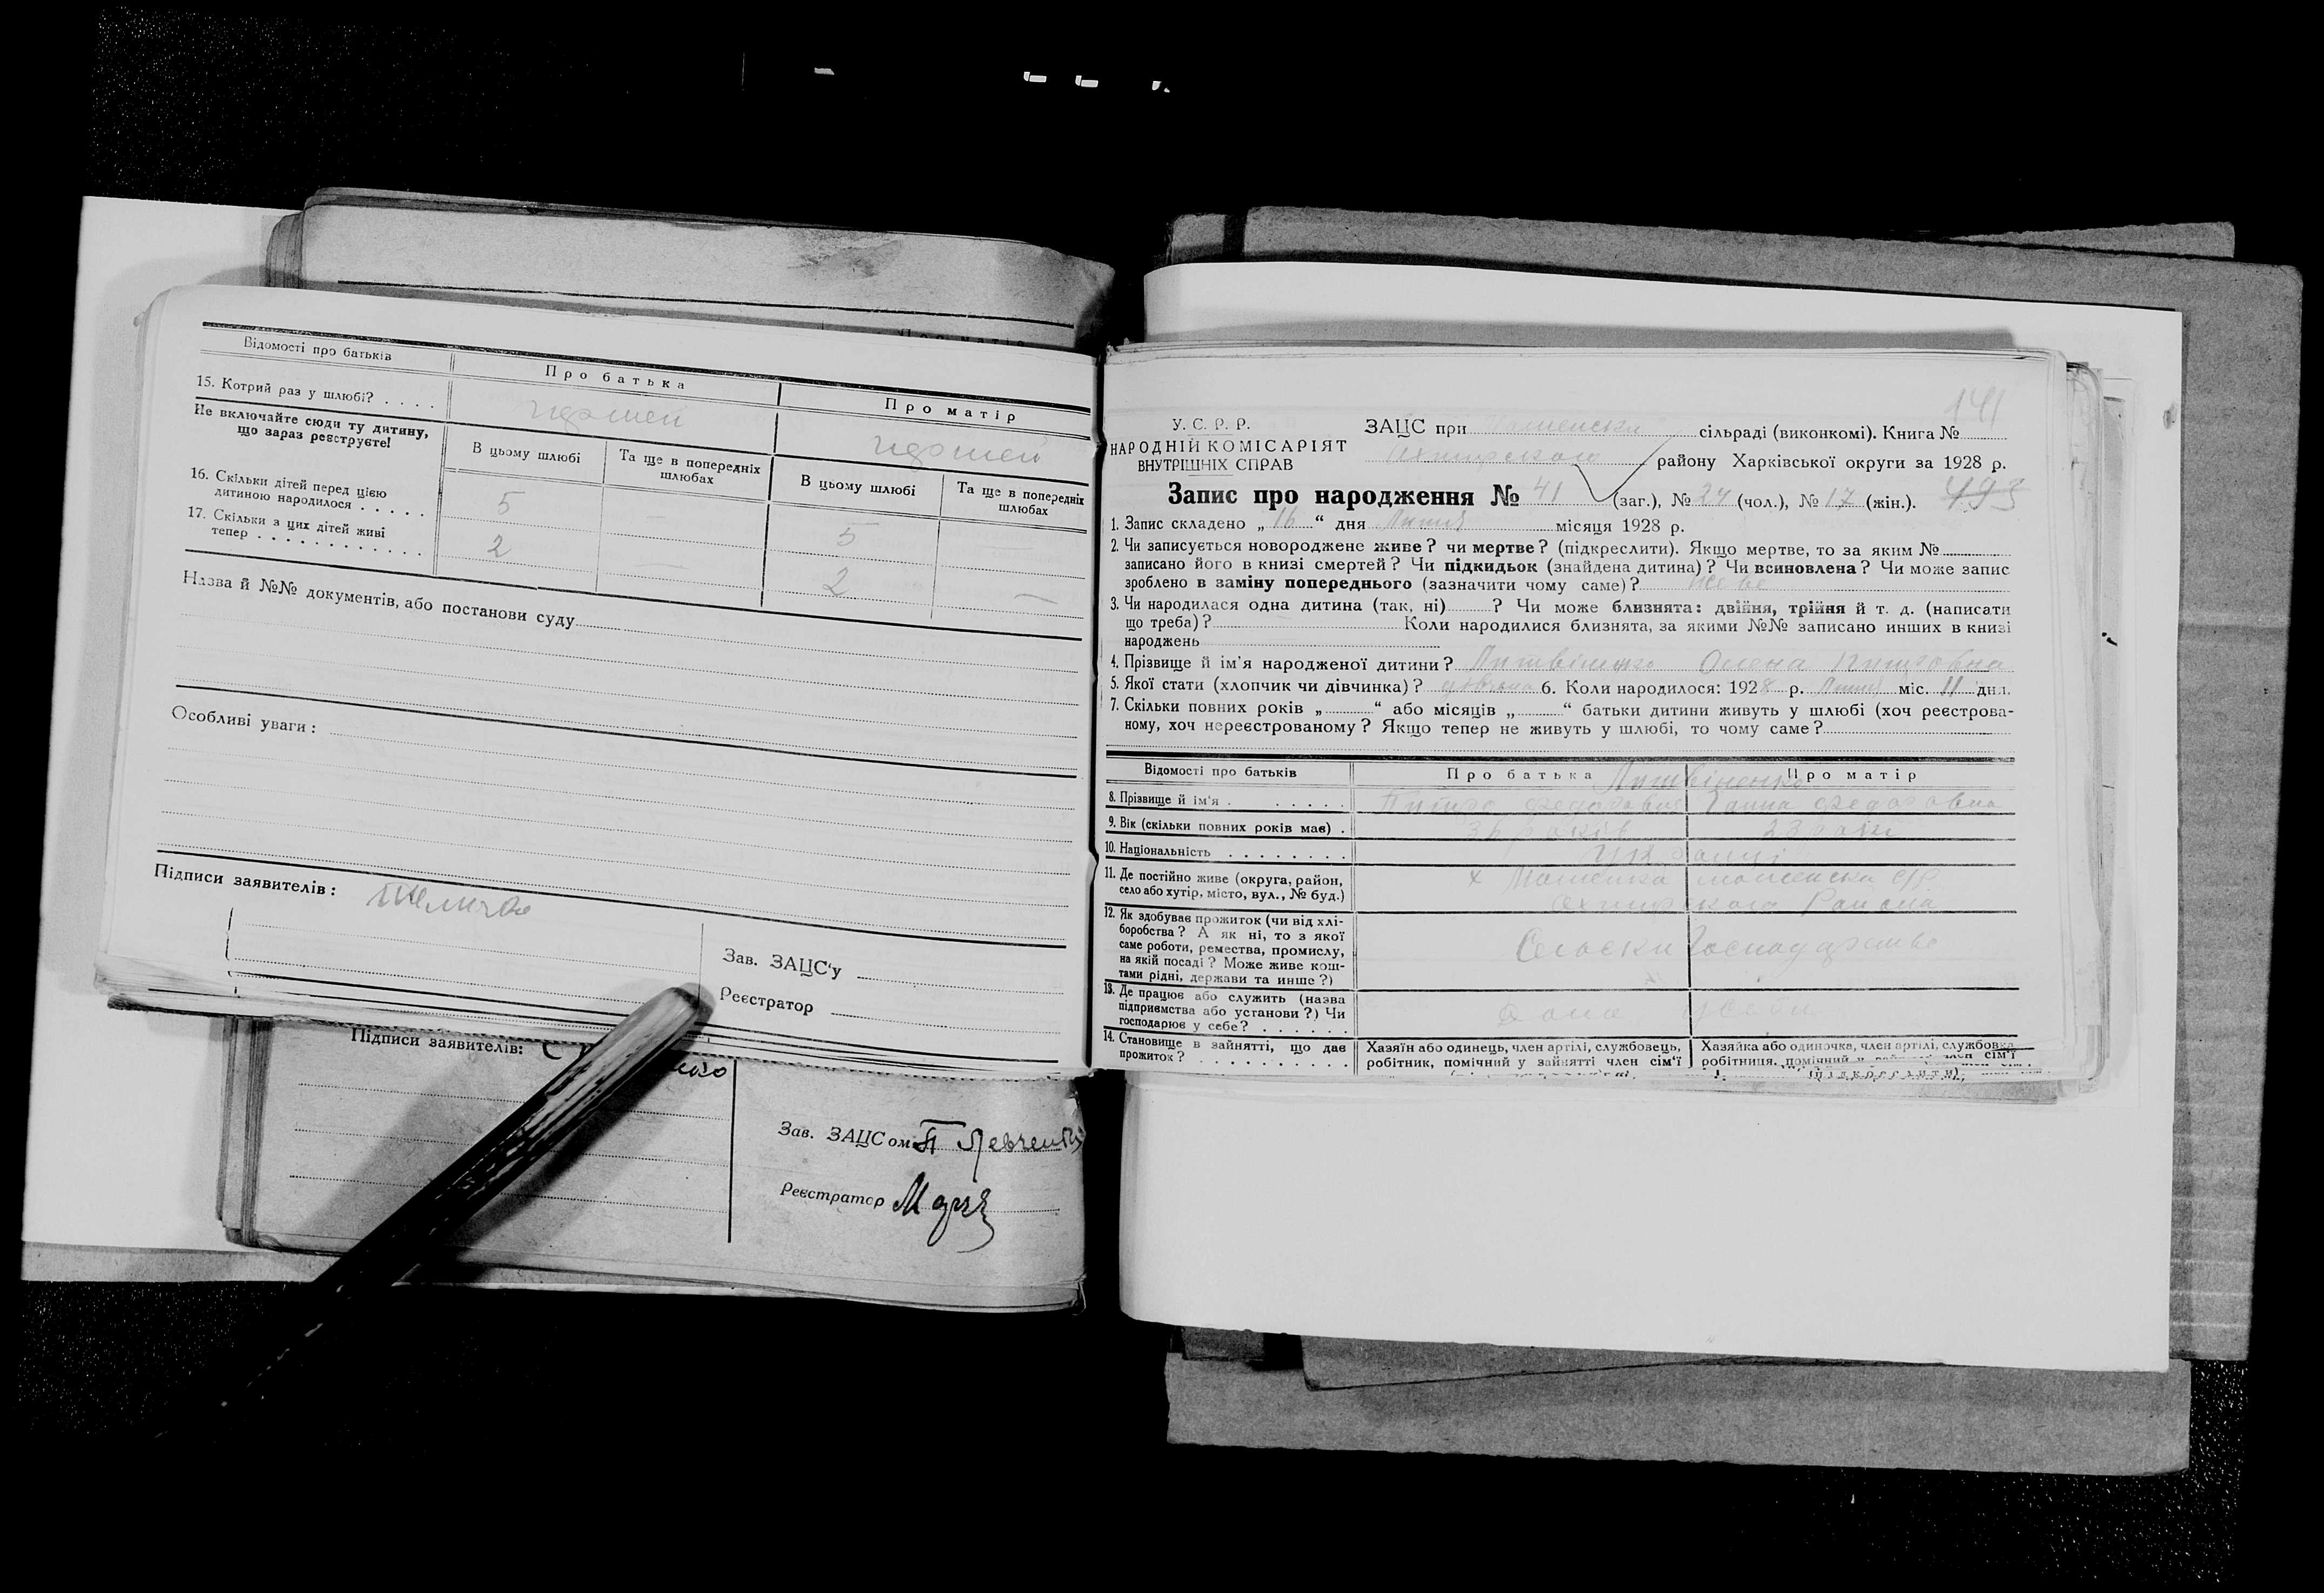 Відомості про батьків
Про батька
Про матір
15. Котрий раз у шлюбі? . . . .
Не включайте сюди ту дитину,
що зараз реєструєте!
В цьому шлюбі
Та ще в попередніх
шлюбах
В цьому шлюбі
Та ще в попередніх
шлюбах
16. Скільки дітей перед цією
дитиною народилося . . . . .
5 — 5 —
17. Скільки з цих дітей живі
тепер . . . . . . . . . . . .
2 — 2 —
Назва й №№ документів, або постанови суду
Особливі уваги:
Підписи заявителів:
Зав. ЗАЦС'у
Реєстратор
Підписи заявителів:
Зав. ЗАЦСом П Левченко
Реєстратор
141
У. С. Р. Р.
НАРОДНІЙ КОМІСАРІЯТ
ВНУТРІШНІХ СПРАВ
ЗАЦС при сільраді (виконкомі). Книга №
району Харківської округи за 1928 р.
Запис про народження № 41 (заг.), № 24 (чол.), № 17 (жін.). 493
1. Запис складено „ 16 “ дня Липня місяця 1928 р.
2. Чи записується новороджене живе? чи мертве? (підкреслити). Якщо мертве, то за яким №
записано його в книзі смертей? Чи підкидьок (знайдена дитина)? Чи всиновлена? Чи може запис
зроблено в заміну попереднього (зазначити чому саме)? живе
3. Чи народилася одна дитина (так, ні) ? Чи може близнята: двійня, трійня й т. д. (написати
що треба)? Коли народилися близнята, за якими №№ записано инших в книзі
народжень
4. Прізвище й ім'я народженої дитини? Литвіненко Олена Питровна
5. Якої стати (хлопчик чи дівчинка)? 6. Коли народилося: 1928 р. Липня міс. 11 дня.
7. Скільки повних років „ “ або місяців „ “ батьки дитини живуть у шлюбі (хоч реєстрова-
ному, хоч нереєстрованому? Якщо тепер не живуть у шлюбі, то чому саме?
Відомості про батьків
Про батька
Про матір
Литвіненко
8. Прізвище й ім'я . . . . . .
Питро Федорович
Ганна Федоровна
9. Вік (скільки повних років має) .
років
23 роки
10. Національність . . . . . . . .
11. Де постійно живе (округа, район,
село або хутір, місто, вул., № буд.)
12. Як здобуває прожиток (чи від хлі-
боробства? А як ні, то з якої
саме роботи, ремества, промислу,
на якій посаді? Може живе кош-
тами рідні, держави та инше?)
13. Де працює або служить (назва
підприємства або установи?) Чи
господарює у себе? . . . . . .
14. Становище в зайнятті, що дає
прожиток? . . . . . . . . .
Хазяїн або одинець, член артілі, службовець,
робітник, помічний у зайнятті член сім'ї
Хазяйка або одиночка, член артілі, службовка
робітниця, помічний у зайнятті член сім'ї
(підкреслити)